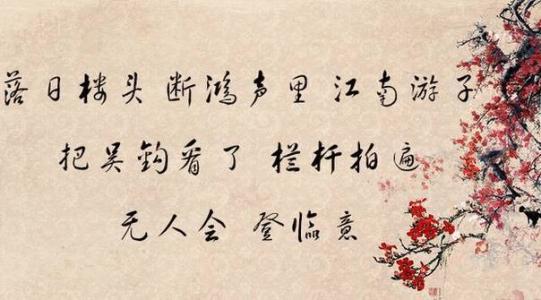 落日楼头 断鸿声里 江南游子
把吴钩看了 栏杆拍遍
无人会 登临意